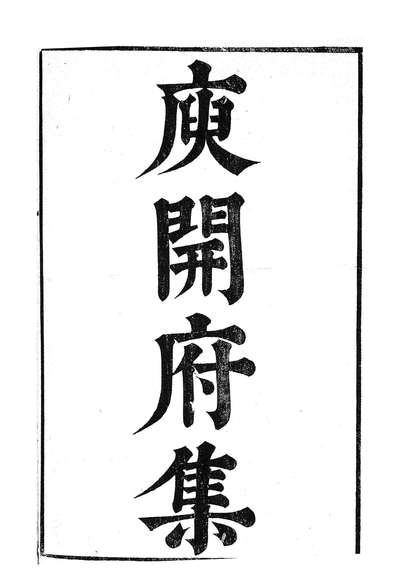 庾開府集